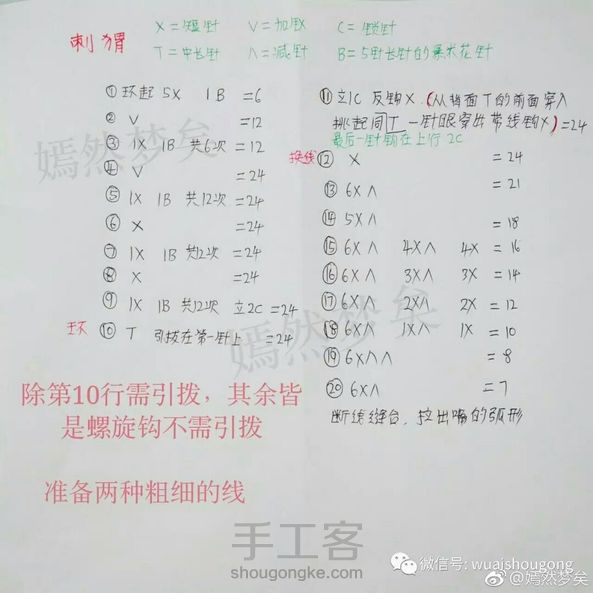 刺猬
X=短针 V=加针 C=锁针
T=中长针 Λ=减针 B=5针长针的枣术花针
① 环起 5X 1B =6
② V =12
③ 1X 1B 共6次 =12
④ V =24
⑤ 1X 1B 共12次 =24
⑥ X =24
⑦ 1X 1B 共12次 =24
⑧ X =24
⑨ 1X 1B 共12次 立2C =24
⑩ T 引拨在第一针上 =24
⑪ 立1C 反钩X.(从背面T的前面穿入
挑起同T一针眼穿出带线钩X)=24
最后一针钩在上行2C
换线 ⑫ X =24
⑬ 6XΛ =21
⑭ 5XΛ =18
⑮ 6XΛ 4XΛ 4X =16
⑯ 6XΛ 3XΛ 3X =14
⑰ 6XΛ 2XΛ 2X =12
⑱ 6XΛ 1XΛ 1X =10
⑲ 6XΛΛ =8
⑳ 6XΛ =7
断线缝合,拉出嘴的弧形
除第10行需引拨,其余皆
是螺旋钩不需引拨
准备两种粗细的线
嫣然梦矣
嫣然梦矣
手工客
shougongke.com
微信号: wuaishougong
@嫣然梦矣